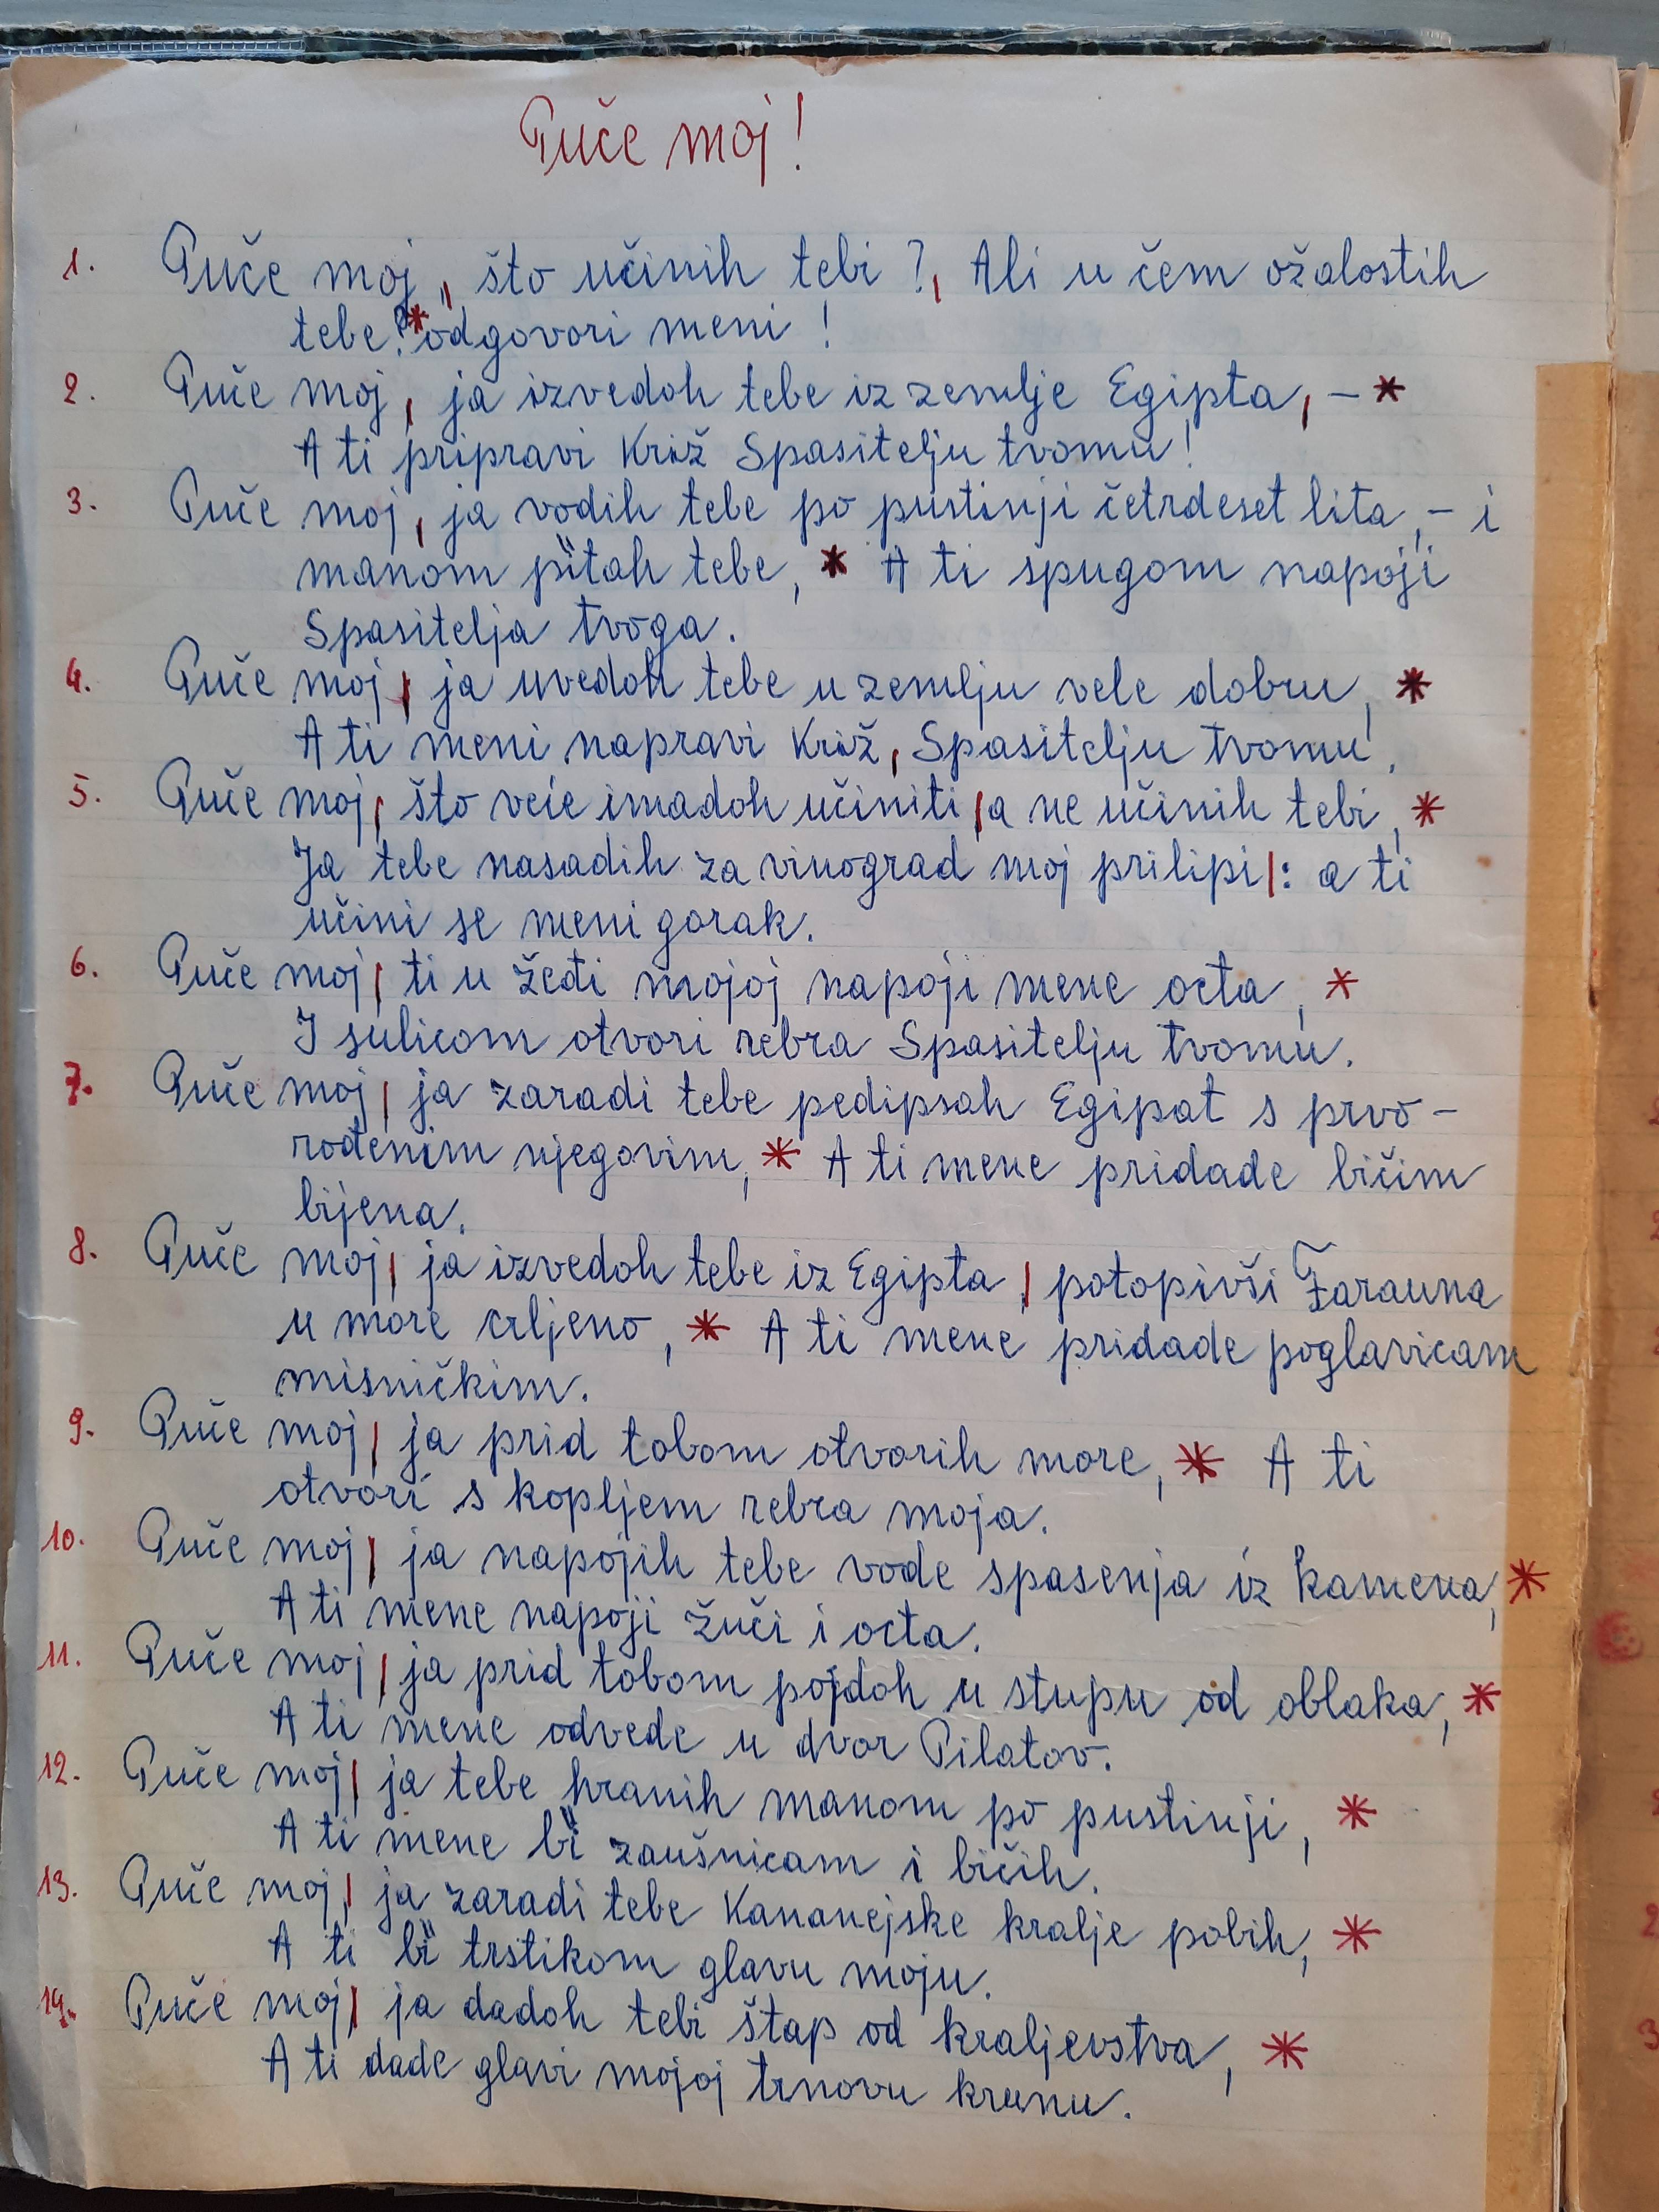 Puče moj!
1. Puče moj, | što učinih tebi?, | Ali u čem ožalostih
tebe? * odgovori meni!
2. Puče moj, | ja izvedoh tebe iz zemlje Egipta, | – *
A ti pripravi Križ Spasitelju tvomu!
3. Puče moj, | ja vodih tebe po pustinji četrdeset lita, – i
manom pitah tebe, * A ti spugom napoji
Spasitelja tvoga.
4. Puče moj, | ja uvedoh tebe u zemlju vele dobru, *
A ti meni napravi Križ, | Spasitelju tvomu!
5. Puče moj, | što veće imadoh učiniti, | a ne učinih tebi, *
Ja tebe nasadih za vinograd moj prilipi |: a ti
učini se meni gorak.
6. Puče moj, | ti u žeđi mojoj napoji mene octa, *
I sulicom otvori rebra Spasitelju tvomu.
7. Puče moj, | ja zaradi tebe pedipsah Egipat s prvo-
rođenim njegovim, * A ti mene pridade bičim
bijena.
8. Puče moj, | ja izvedoh tebe iz Egipta, | potopivši Farauna
u more crljeno, * A ti mene pridade poglavicam
misničkim.
9. Puče moj, | ja prid tobom otvorih more, * A ti
otvori s kopljem rebra moja.
10. Puče moj, | ja napojih tebe vode spasenja iz kamena, *
A ti mene napoji žuči i octa.
11. Puče moj, | ja prid tobom pojdoh u stupu od oblaka, *
A ti mene odvede u dvor Pilatov.
12. Puče moj, | ja tebe hranih manom po pustinji, *
A ti mene bï zaušnicam i bičih.
13. Puče moj, | ja zaradi tebe Kananejske kralje pobih, *
A ti bï trstikom glavu moju.
14. Puče moj, | ja dadoh tebi štap od kraljevstva, *
A ti dade glavi mojoj trnovu krunu.